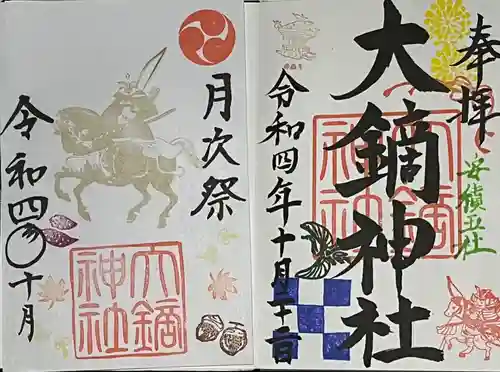 奉拝
安積五社
大鏑神社
令和四年十月二十二日
大鏑神社
月次祭
令和四年十月
大鏑神社